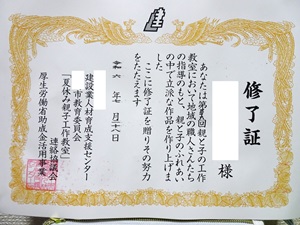 修了証
様
あなたは第　回親と子の工作
教室において地域の職人さんたち
の指導のもと、親と子のふれあい
の中で立派な作品を作り上げま
した
ここに修了証を贈りその努力
をたたえます
令和六年七月二十八日
建設業人材育成支援センター
市教育委員会
「夏休み親子工作教室」
連絡協議会
厚生労働省助成金活用事業